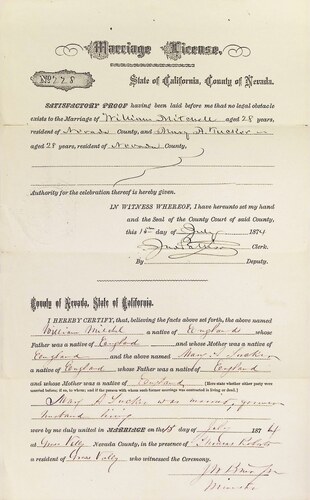 Marriage License.
No. 228
State of California, County of Nevada.
SATISFACTORY PROOF having been laid before me that no legal obstacle
exists to the Marriage of William Mitchell aged 28 years,
resident of Nevada County, and Mary A. Tucker
aged 28 years, resident of Nevada County.
Authority for the celebration thereof is hereby given.
IN WITNESS WHEREOF, I have hereunto set my hand
and the Seal of the County Court of said County,
this day of July 1874
Clerk.
By Deputy.
County of Nevada, State of California.
I HEREBY CERTIFY, that, believing the facts above set forth, the above named
William a native of England whose
Father was a native of England and whose Mother was a native of
England and the above named Tucker
a native of England whose Father was a native of England
and whose Mother was a native of England [Here state whether either party were
married before; if so, to whom; and if the persons with whom such former marriage was contracted is living or dead.]
Mary A Tucker was
husband living
were by me duly united in MARRIAGE on the day of July 1874
at Grass Vally Nevada County, in the presence of Thomas Roberts
a resident of Grass Vally who witnessed the Ceremony.
Minister